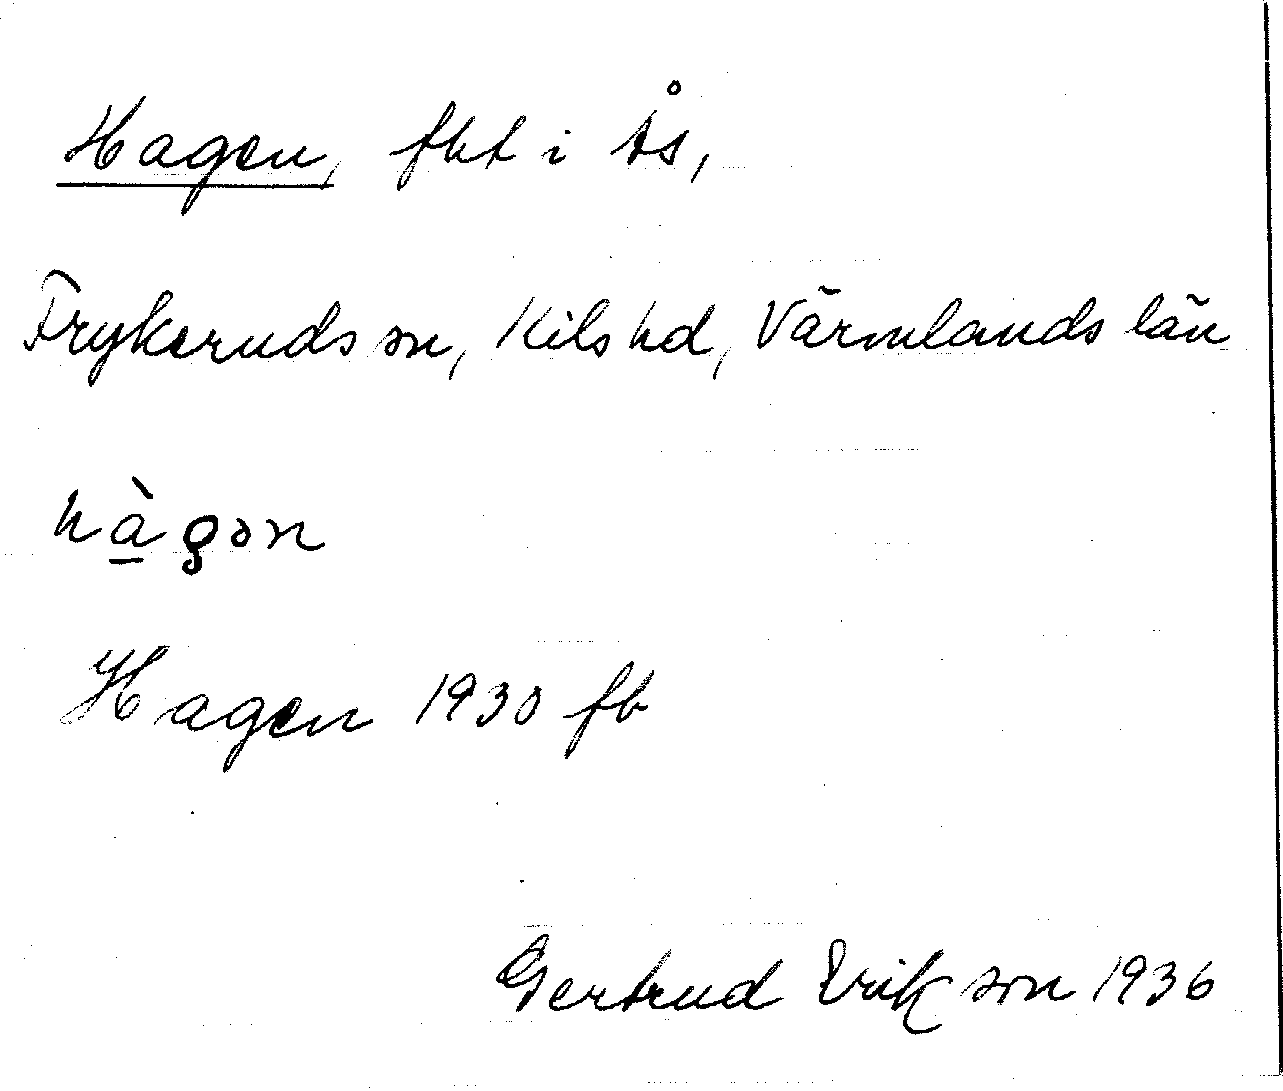 Hagen, fbt i Ås,
Frykeruds sn, Kils hd, Värmlands län
hàgon
Hagen 1930 fb
Gertrud Erikson 1936